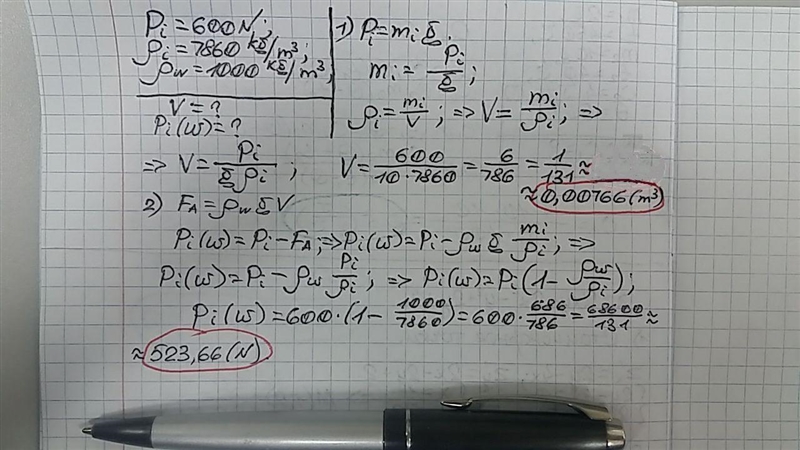 Pi=600N;
ρi=7860 kg/m³;
ρw=1000 kg/m³;
V=?
Pi(w)=?
1) Pi=mi g;
mi= Pi/g;
ρi= mi/V; => V= mi/ρi; =>
=> V= Pi/(g ρi); V= 600/(10·7860) = 6/786 = 1/131 ≈
≈ 0,00766 (m³)
2) FA=ρw g V
Pi(w)=Pi-FA; => Pi(w)=Pi-ρw g mi/ρi; =>
Pi(w)=Pi-ρw Pi/ρi; => Pi(w)=Pi(1- ρw/ρi);
Pi(w)=600·(1- 1000/7860)=600· 686/786 = 68600/131 ≈
≈ 523,66 (N)